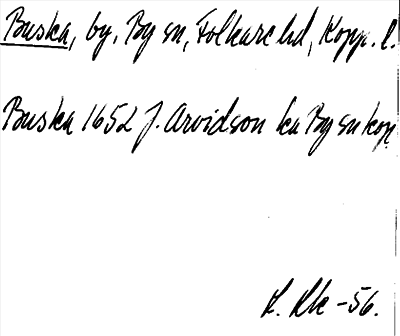 Buska, by, By sn, Folkare hd, Kopp. l.
Buska 1652 J. Arvidson ka By sn kop
R. Rk -56.